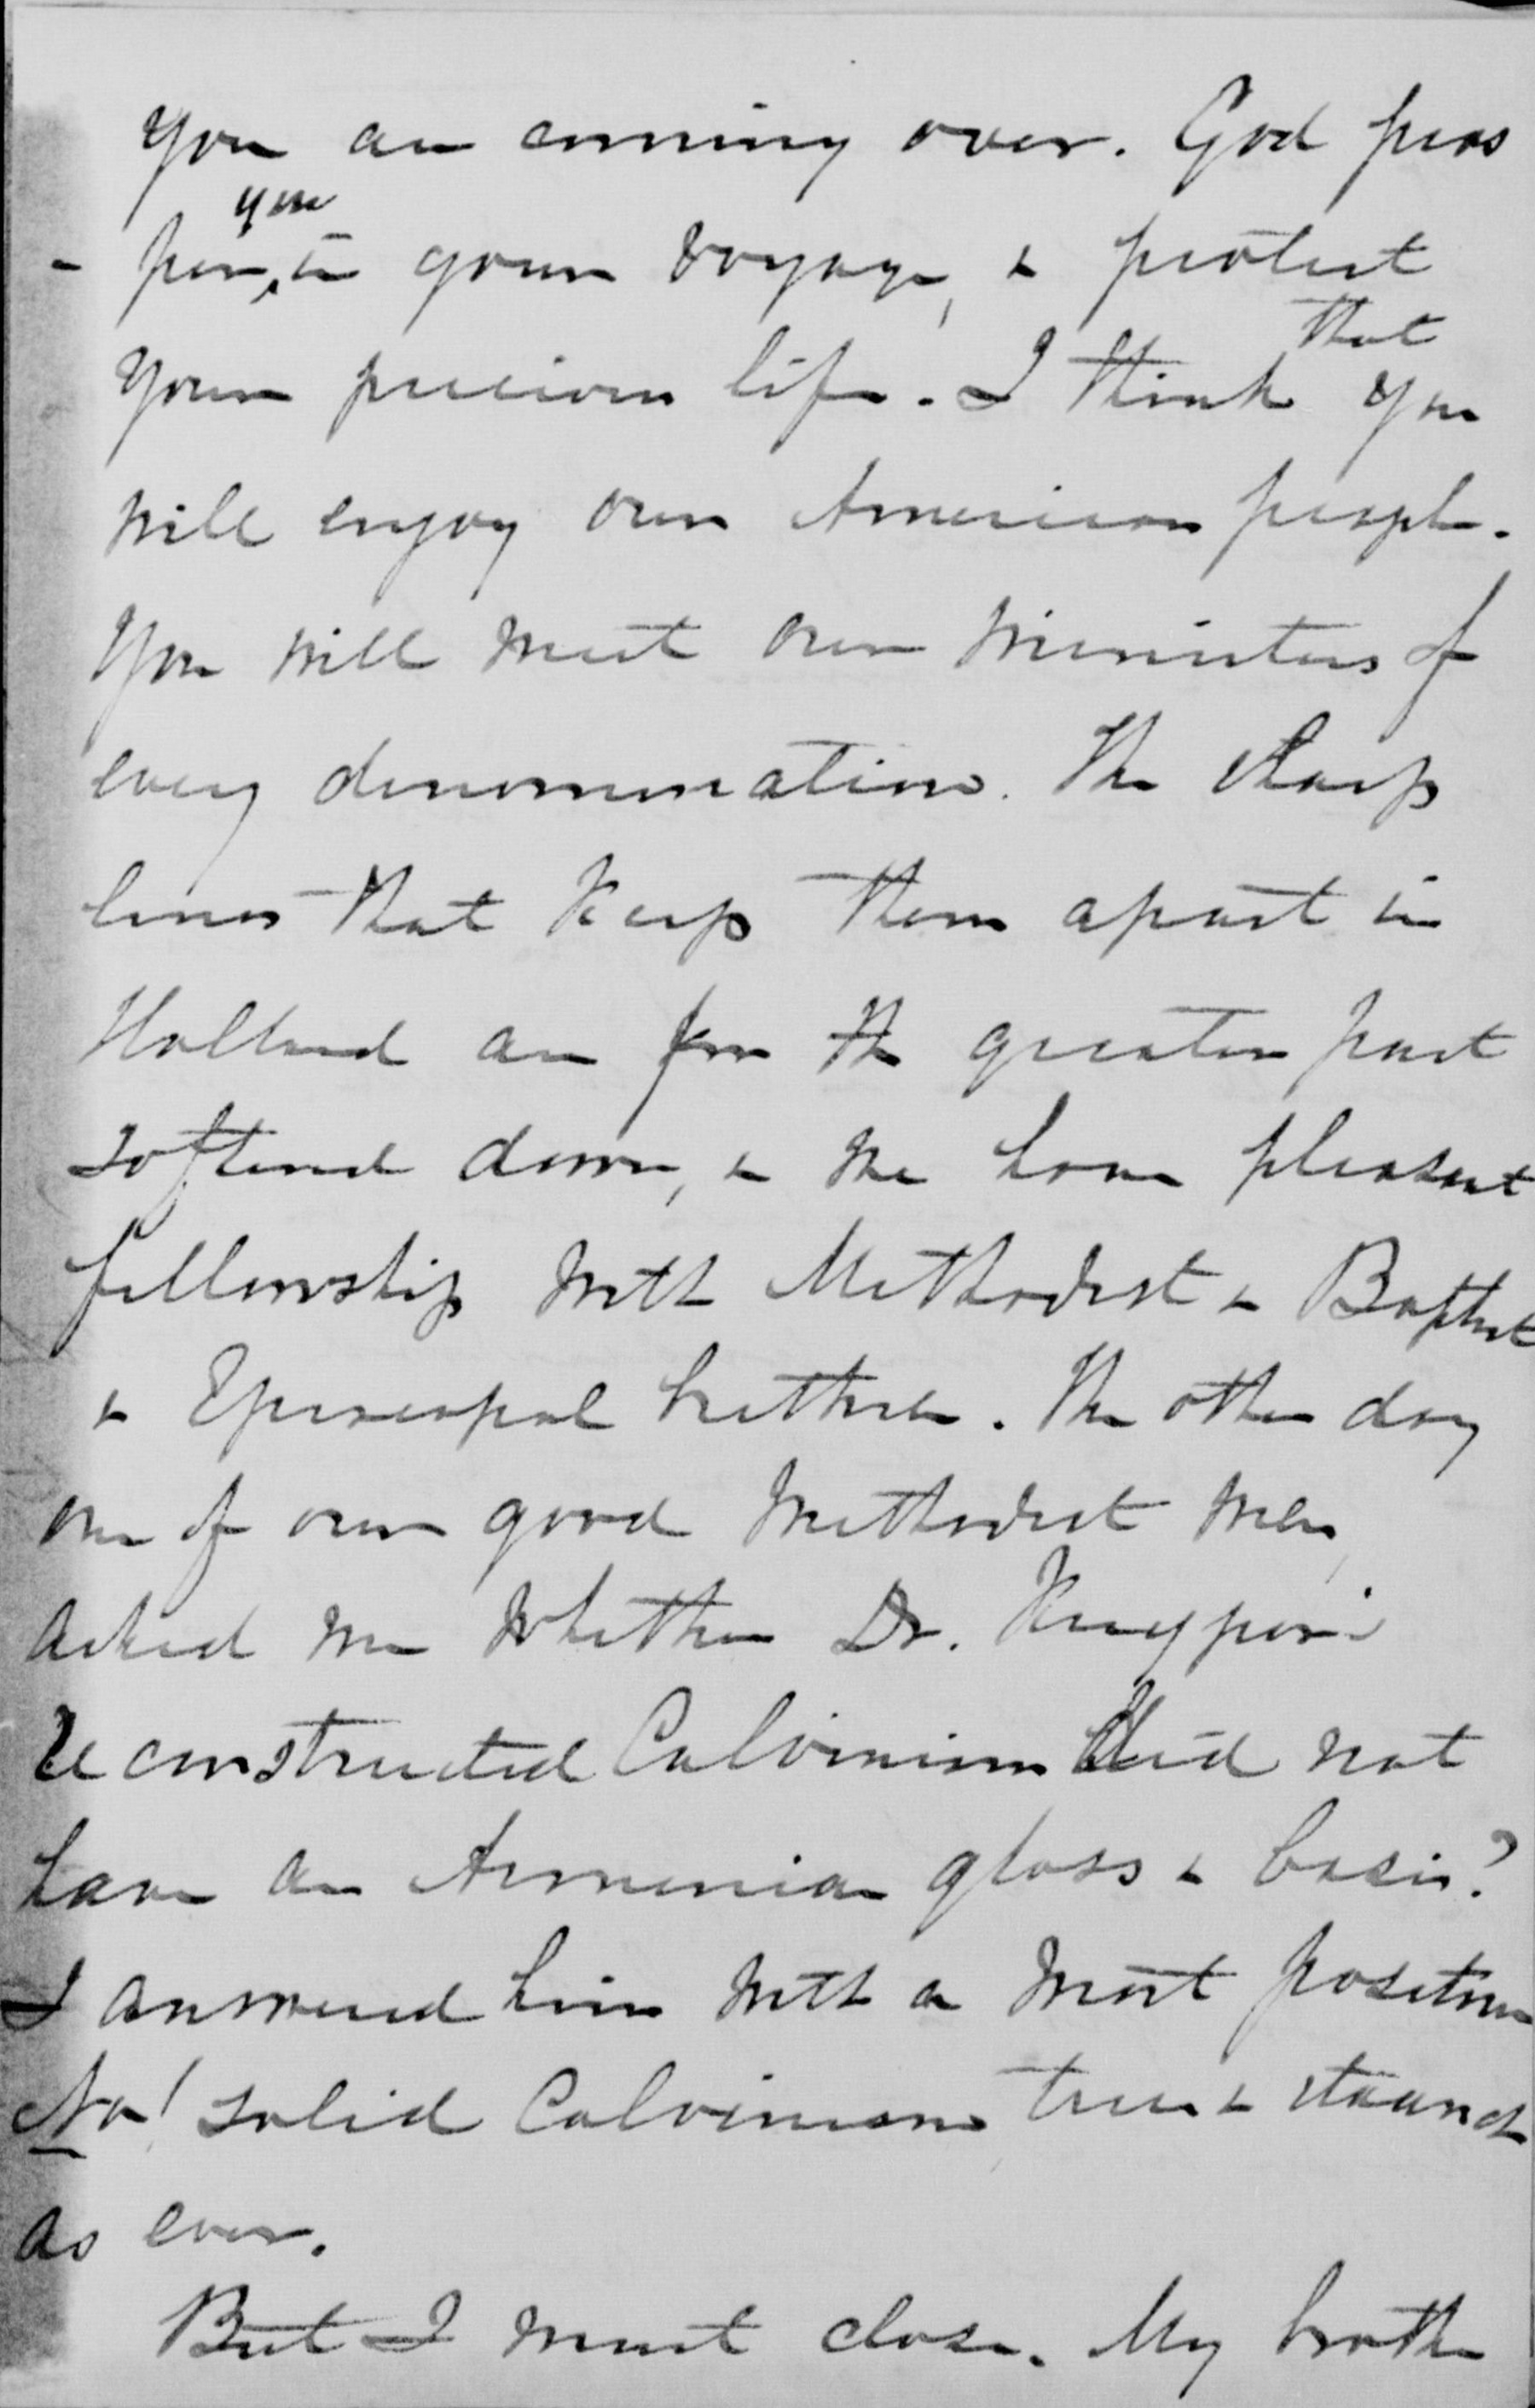 you are coming over. God pros
- per, you in your voyage, & protect
your precious life. I think that you
will enjoy our American people.
You will meet our ministers of
every denomination. The sharp
lines that keep them apart in
Holland are for the greater part
softend down, & we have pleasant
fellowship with Methodist & Baptist
& Episcopal brethren. The other day
one of our good Methodist men,
asked me whether Dr. Kuyper's
reconstructed Calvinism did not
have an Armenian gloss & basis?
I answered him with a most positive
No! solid Calvinism, true & staunch
as ever.
But I must close. My brother